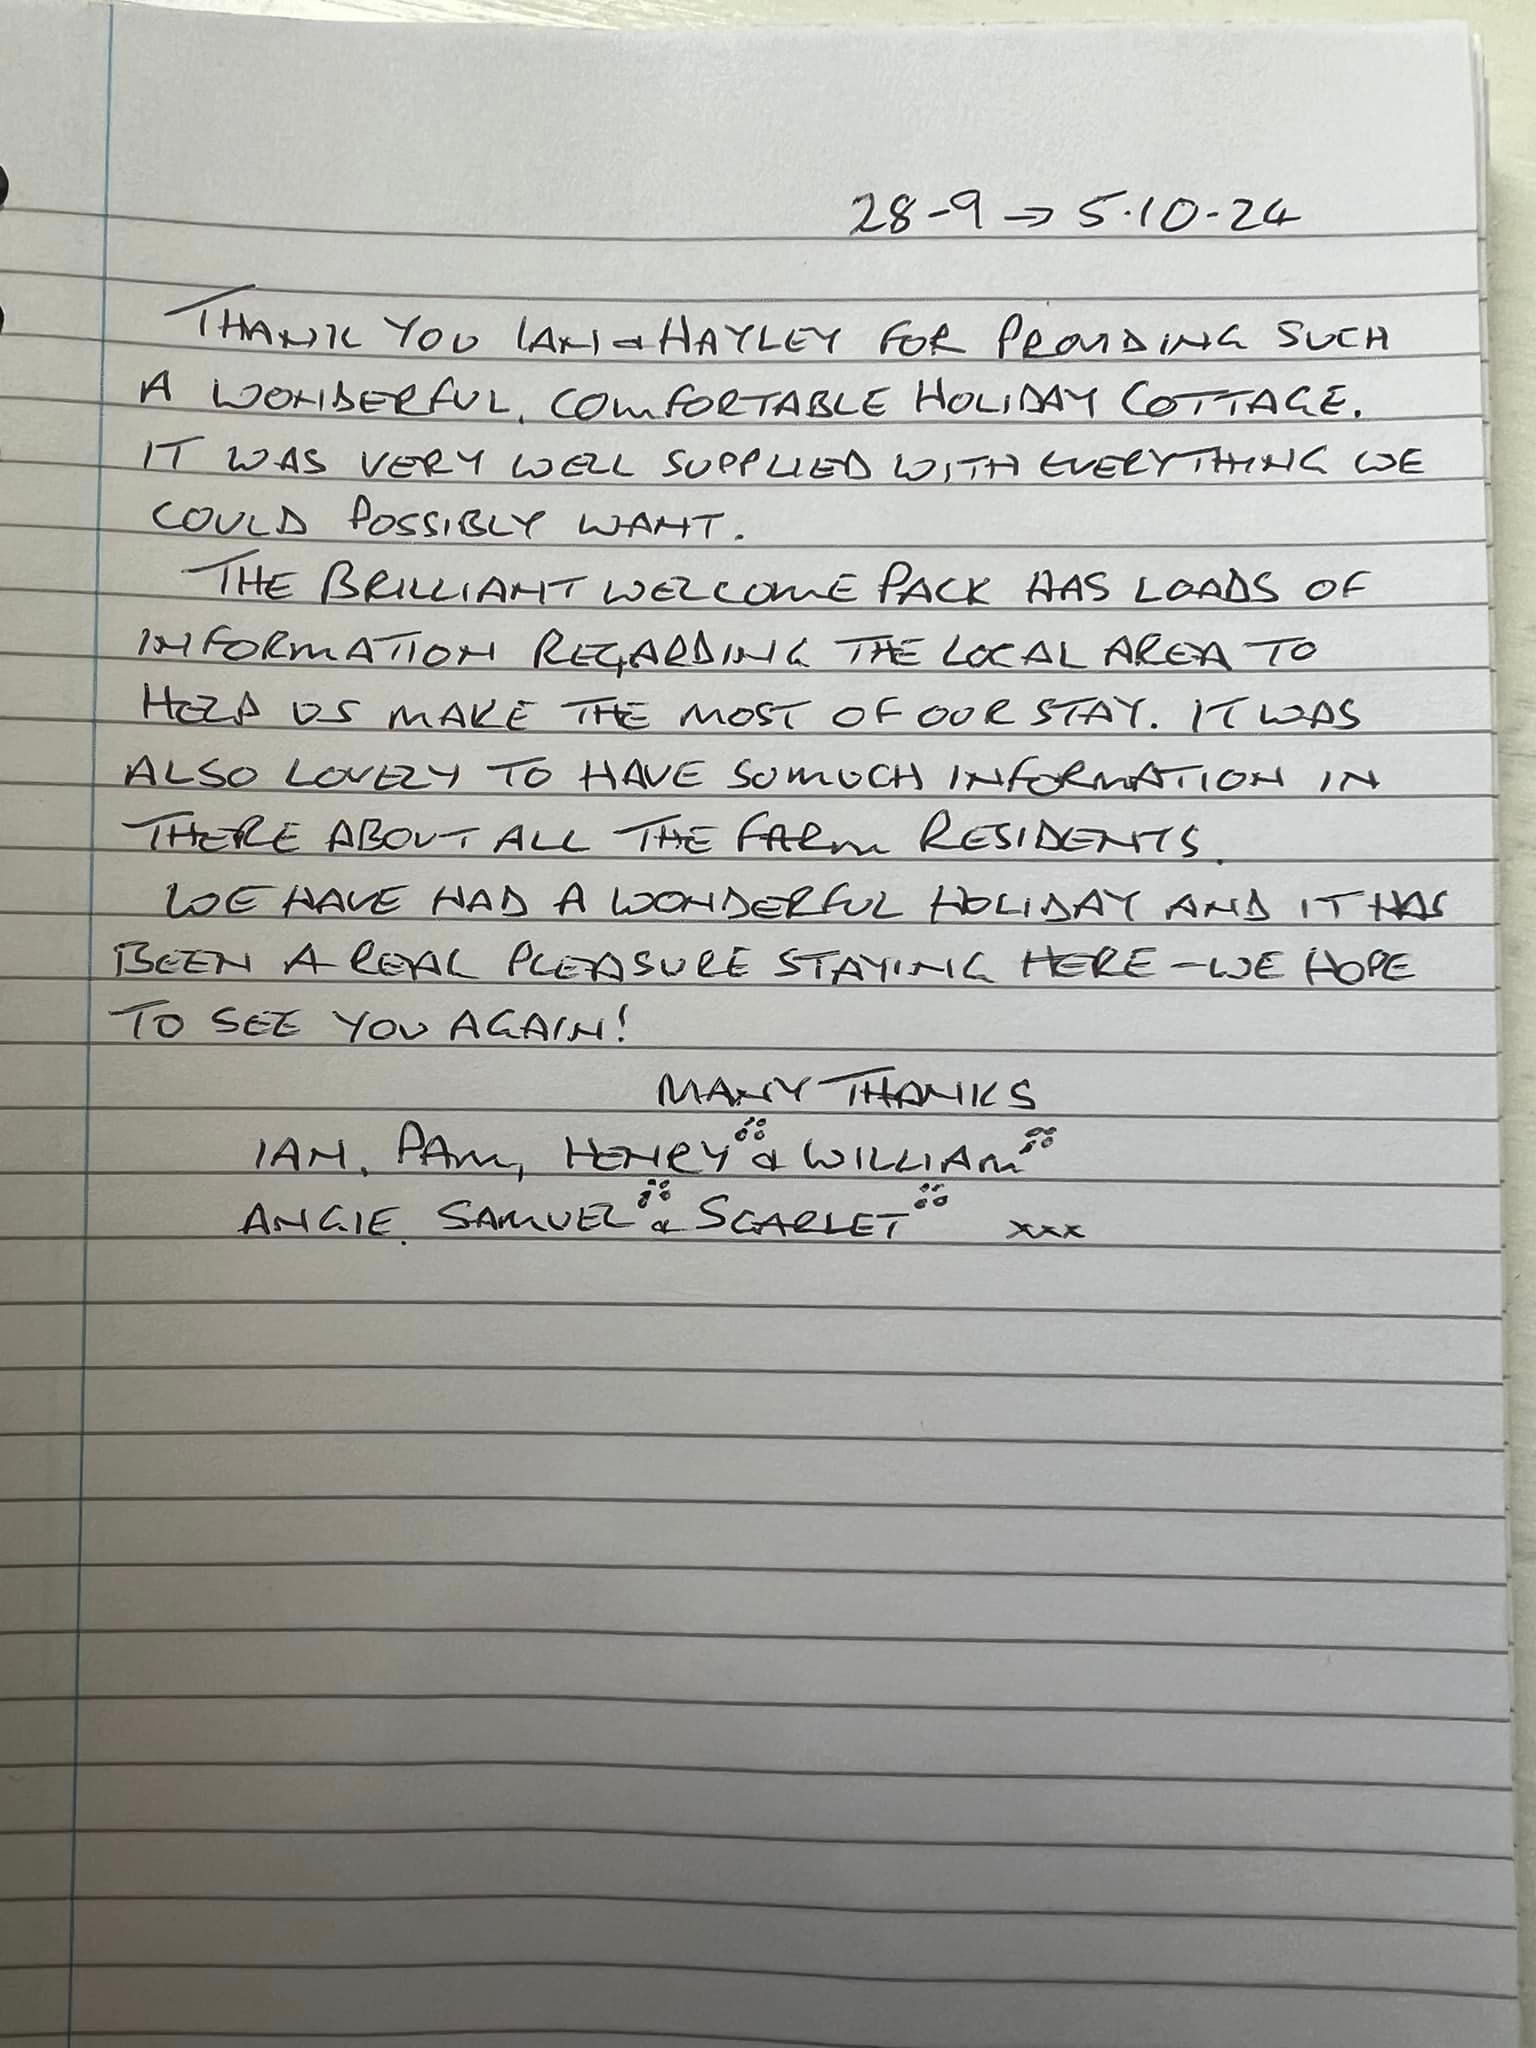 28-9 → 5.10-24
THANK YOU IAN & HAYLEY FOR PROVIDING SUCH
A WONDERFUL, COMFORTABLE HOLIDAY COTTAGE.
IT WAS VERY WELL SUPPLIED WITH EVERYTHING WE
COULD POSSIBLY WANT.
THE BRILLIANT WELCOME PACK HAS LOADS OF
INFORMATION REGARDING THE LOCAL AREA TO
HELP US MAKE THE MOST OF OUR STAY. IT WAS
ALSO LOVELY TO HAVE SO MUCH INFORMATION IN
THERE ABOUT ALL THE FARM RESIDENTS.
WE HAVE HAD A WONDERFUL HOLIDAY AND IT HAS
BEEN A REAL PLEASURE STAYING HERE - WE HOPE
TO SEE YOU AGAIN!
MANY THANKS
IAN, PAM, HENRY & WILLIAM
ANGIE, SAMUEL & SCARLET xxx